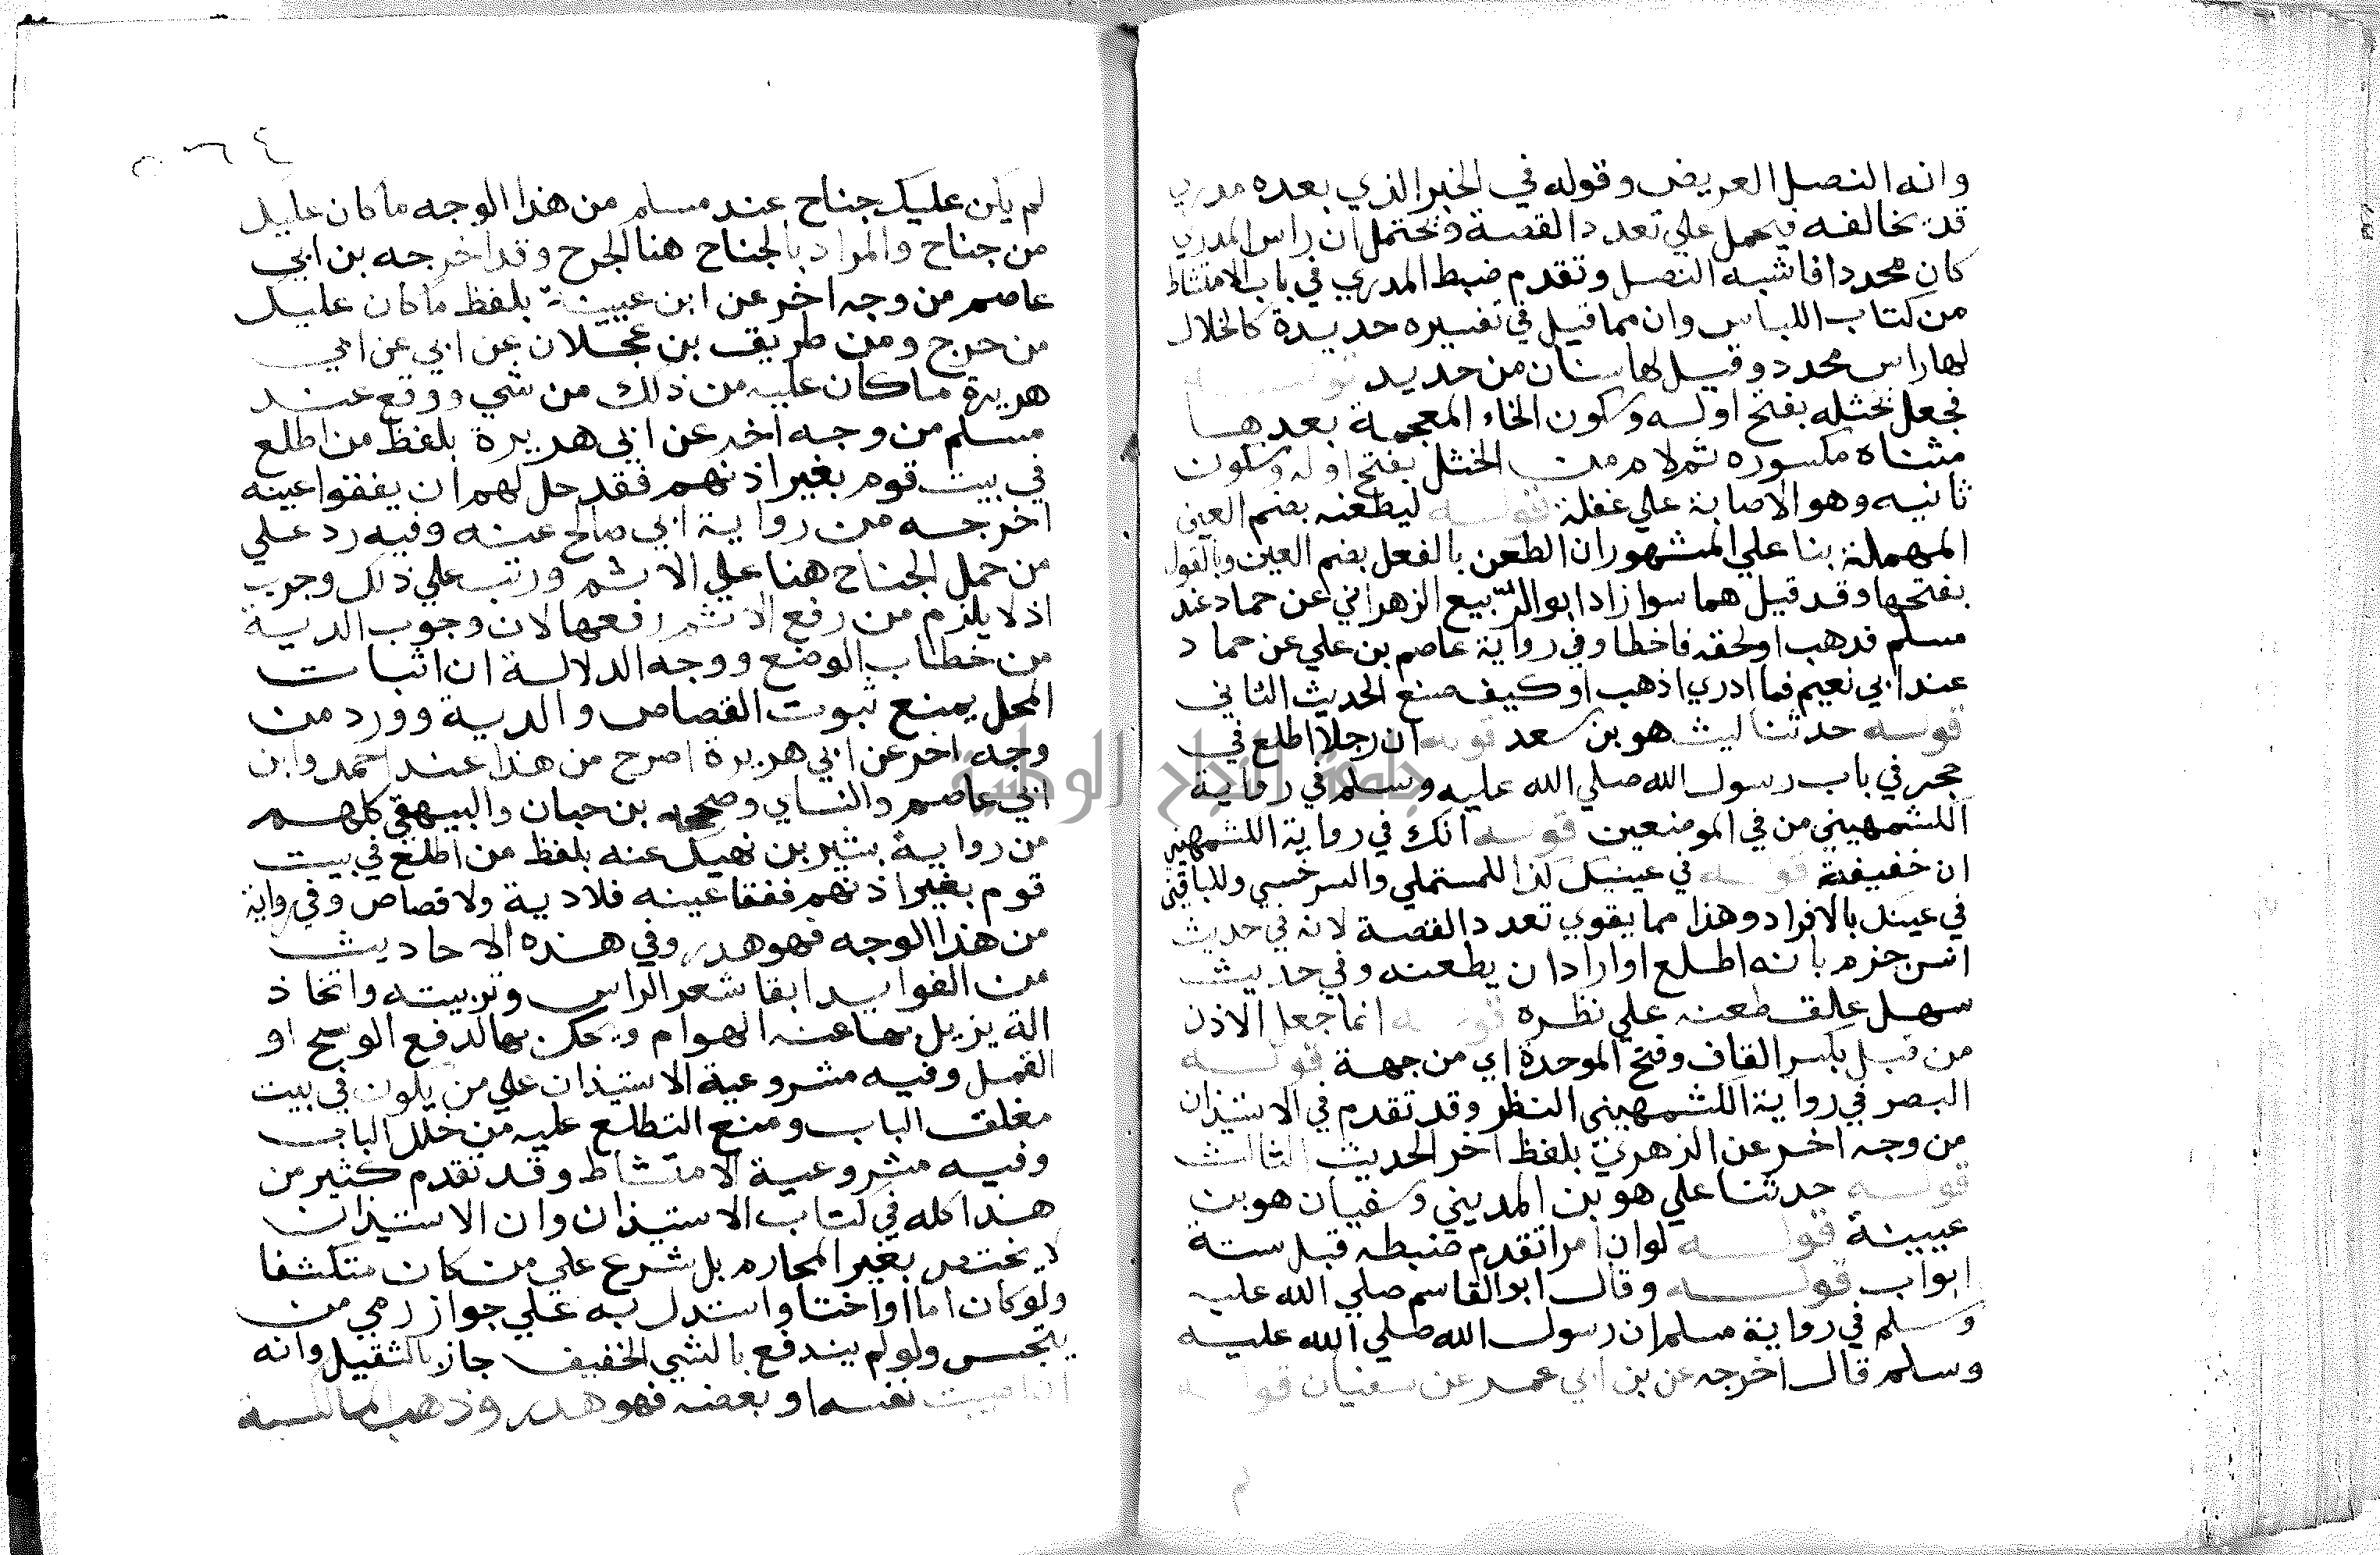 وانه النصل العريض وقوله في الخبر الذي بعده مدري
قد يخالفه فيحمل علي تعدد القصة ويحتمل ان راس المدري
كان محددا فاشبه النصل وتقدم ضبط المدري في باب الامتشاط
من كتاب اللباس وان مما قيل في تفسيره حديدة كالخلال
لها راس محدد وقيل لها سنان من حديد قوله
فجعل يختله بفتح اوله وسكون الخاء المعجمة بعدها
مثناه مكسوره ثم لام من الختل بفتح اوله وسكون
ثانيه وهو الاصابة علي غفلة قوله ليطعنه بضم العين
المهملة بنا علي المشهور ان الطعن بالفعل بضم العين وبالقول
بفتحها وقد قيل هما سوا زاد ابو الربيع الزهراني عن حماد عند
مسلم فذهب او لحقه فاخطا وفي رواية عاصم بن علي عن حماد
عند ابي نعيم فما ادري اذهب او كيف صنع الحديث الثاني
قوله حدثنا ليث هو بن سعد قوله ان رجلا اطلع في
جحر في باب رسول الله صلي الله عليه وسلم في رواية
الكشمهيني من في الموضعين قوله انك في رواية الكشمهيني
ان خفيفة قوله في عينيك كذا للمستملي والسرخسي وللباقين
في عينك بالافراد وهذا مما يقوي تعدد القصة لانه في حديث
انس جزم بانه اطلع اواراد ان يطعنه وفي حديث
سهل علق طعنه علي نظره قوله انما جعل الاذن
من قبل بكسر القاف وفتح الموحدة اي من جهة قوله
البصر في رواية الكشمهيني النظر وقد تقدم في الاستيذان
من وجه اخر عن الزهري بلفظ اخر الحديث الثالث
قوله حدثنا علي هو بن المديني وسفيان هو بن
عيينة قوله لوان امرا تقدم ضبطه قبل ستة
ابواب قوله وقال ابو القاسم صلي الله عليه
وسلم في رواية مسلم ان رسول الله صلي الله عليه
وسلم قال اخرجه عن بن ابي عمر عن سفيان قوله
لم يكن عليك جناح عند مسلم من هذا الوجه ما كان عليك
من جناح والمراد بالجناح هنا الجرح وقد اخرجه بن ابي
عاصم من وجه اخر عن ابن عيينة بلفظ ما كان عليك
من حرج ومن طريق بن عجلان عن ابي عن ابي
هريرة ما كان عليه من ذلك من شي ووقع عند
مسلم من وجه اخر عن ابي هريرة بلفظ من اطلع
في بيت قوم بغير اذنهم فقد حل لهم ان يفقوا عينه
اخرجه من رواية ابي صالح عنه وفيه رد علي
من حمل الجناح هنا علي الاثم ورتب علي ذلك وجوب
اذ لا يلزم من رفع الاثم رفعها لان وجوب الدية
من خطاب الوضع ووجه الدلالة ان اثبات
المحل يمنع ثبوت القصاص والدية وورد من
وجه اخر عن ابي هريرة اصرح من هذا عند احمد وابن
ابي عاصم والنساي وصححه بن حبان والبيهقي كلهم
من رواية بشير بن نهيك عنه بلفظ من اطلع في بيت
قوم بغير اذنهم ففقا عينه فلا دية ولا قصاص وفي رواية
من هذا الوجه فهو هدر وفي هذه الاحاديث
من الفوايد ابقا شعر الراس وتربيته واتخاذ
الة يزيل بها عنه الهوام ويحك بها لدفع الوسخ او
القمل وفيه مشروعية الاستيذان علي من يكون في بيت
مغلق الباب ومنع التطلع عليه من خلل الباب
وفيه مشروعية الامتشاط وقد تقدم كثير من
هذا كله في كتاب الاستيذان وان الاستيذان
لا يختص بغير المحارم بل شرع علي من كان متكشفا
ولو كان اما او اختا واستدل به علي جواز رمي من
يتجسس ولو لم يندفع بالشي الخفيف جاز بالثقيل وانه
ان اصيبت نفسه او بعضه فهو هدر وذهب المالكية